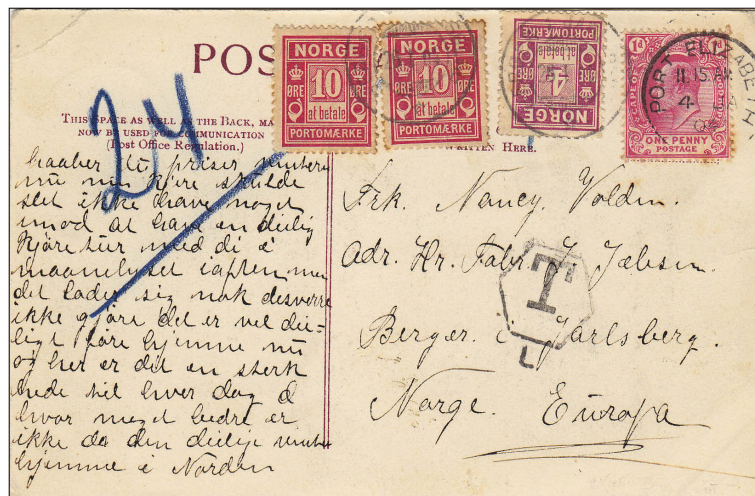 POS
THIS SPACE AS WELL AS THE BACK, MA
NOW BE USED FOR COMMUNICATION
(Post Office Regulation.)
24
NORGE
10
ØRE ØRE
at betale
PORTOMÆRKE
NORGE
10
ØRE ØRE
at betale
PORTOMÆRKE
NORGE
4
ØRE ØRE
at betale
PORTOMÆRKE
1d
CAPE OF GOOD HOPE
ONE PENNY
POSTAGE
PORT ELIZABETH
11.15 AM
HERE.
haaber du priser vinteren
nu min kjære skulde
slet ikke have noget
imod at have en deilig
kjøretur med di i
maanelyset iaften men
det lader sig nok desverre
ikke gjøre det er vel dei-
ligt føre hjemme nu
og her er det en sterk
hede til hver dag å
hvor meget bedre er
ikke da den deilige vinter
hjemme i Norden
Frk. Nancy Voldin.
Adr. Hr. Fabr. J. Jebsen.
Berger i Jarlsberg.
Norge. Europa
T
L